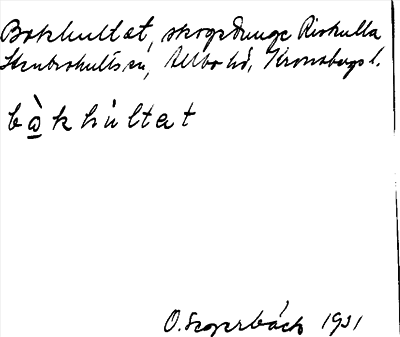 Bokhultet, skogsdunge Riskulla
Stenbrohults sn, Allbo hd, Kronobergs l.
bà̲khùltet
O. Segerbäck 1931